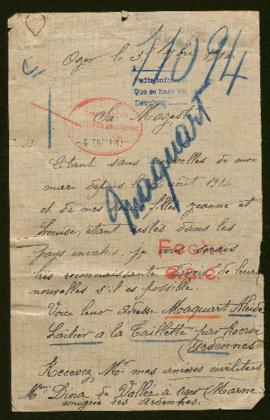 Oger le 3
11094
Sa Majesté
4 ENE 191
Etant sans nouvelles de mon
mari depuis août 1914
et de mes filles Jeanne et
Louise, étant restés dans les
pays envahis, je vous serais
très reconnaissante de leurs
nouvelles s'il est possible.
Voici leur adresse Moaquart Alcide
Laitier à la Taillette par Rocroi
(Ardennes)
Recevez Mr mes sincères civilités
Mme Dina de Vallée à Oger Marne
émigrée des Ardennes.